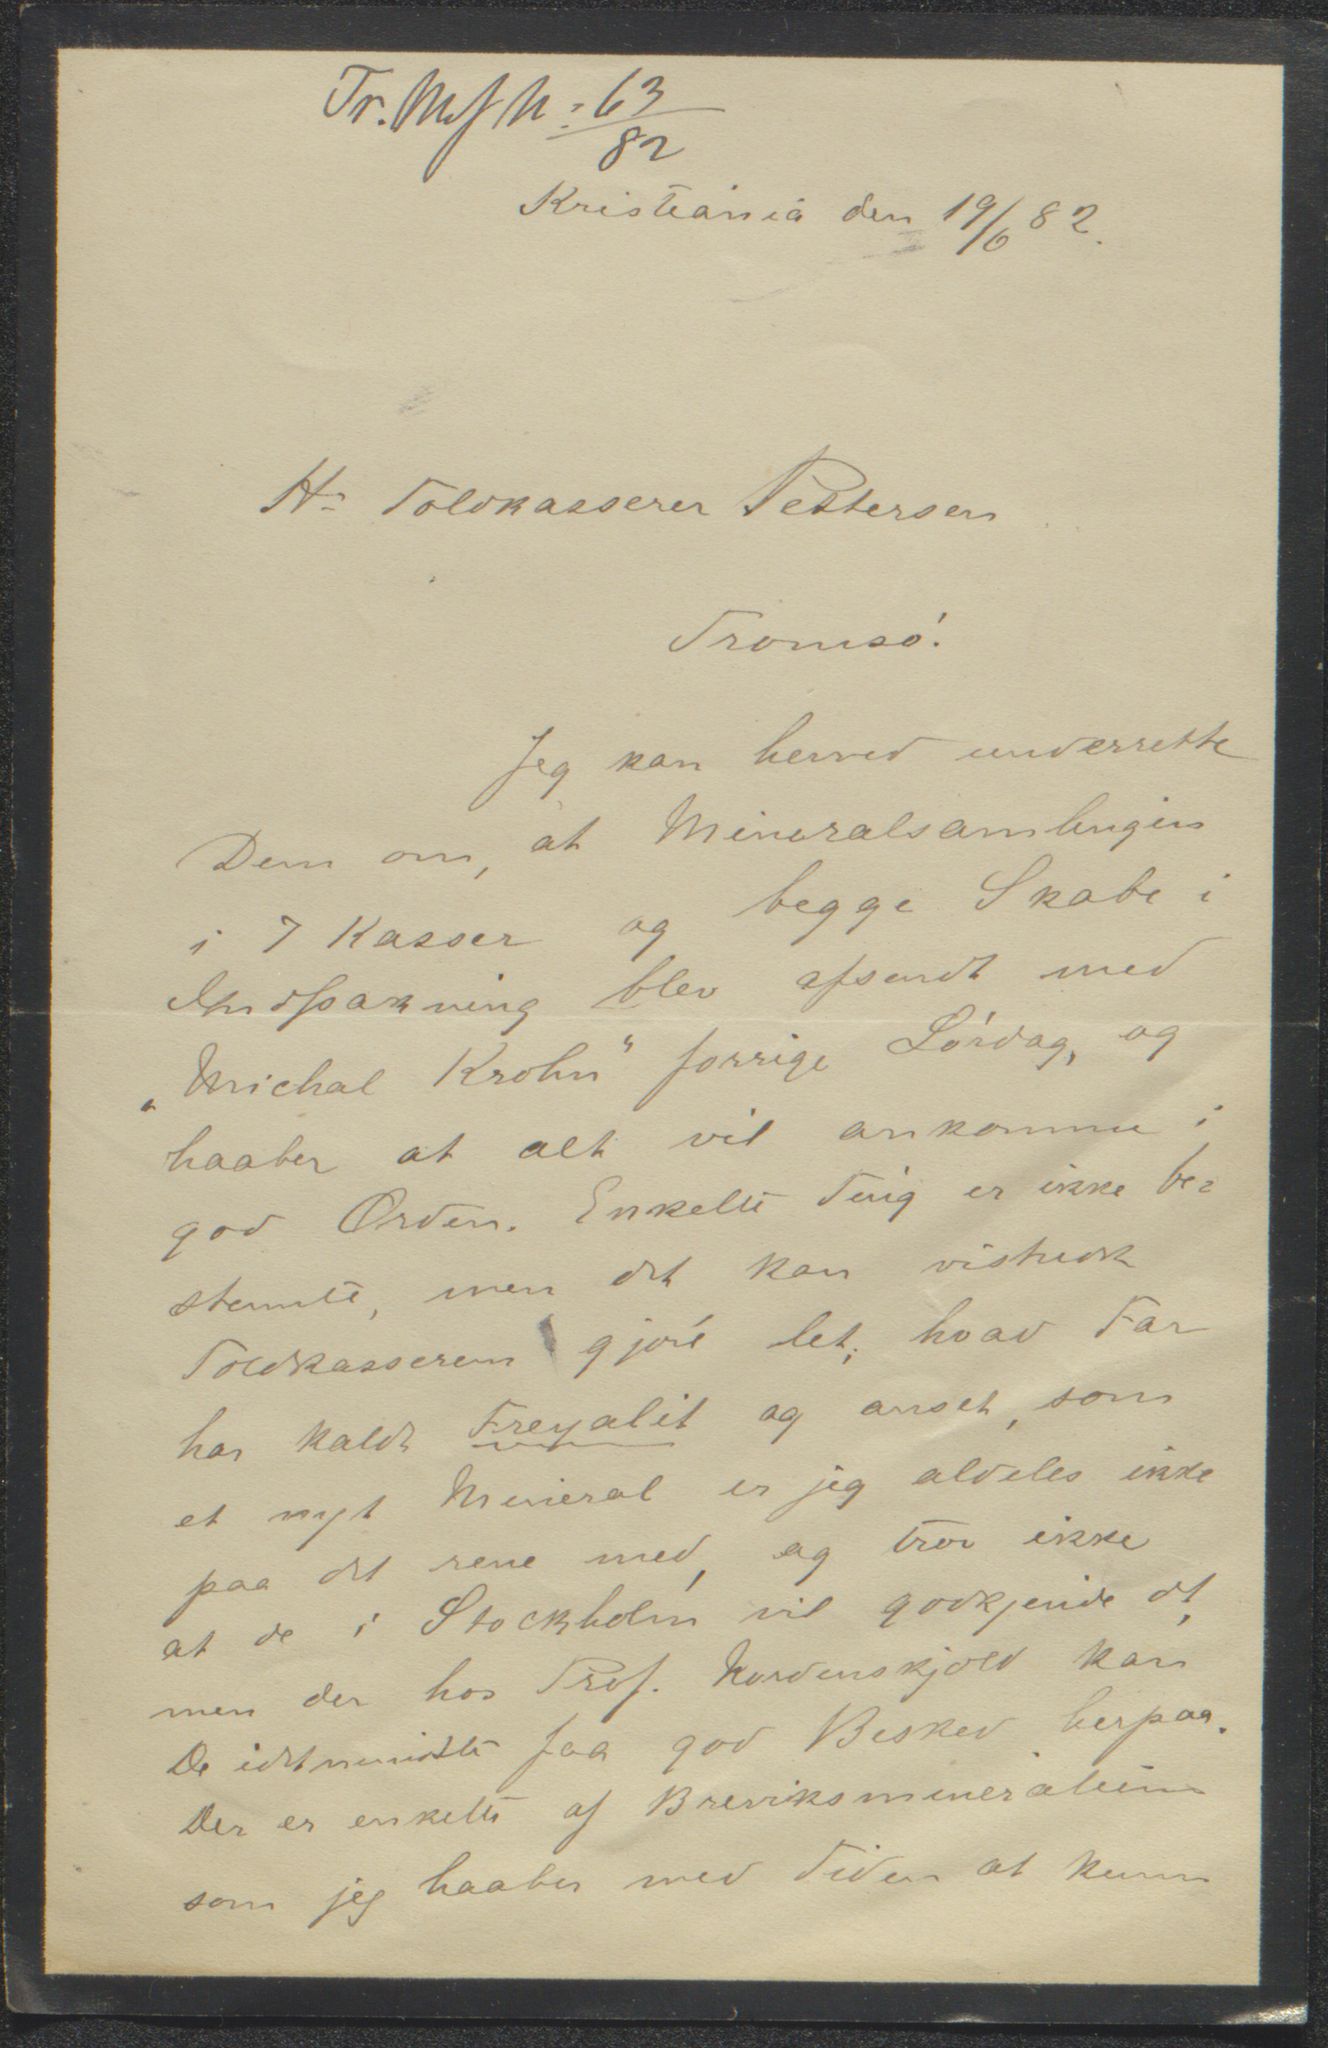 Tr. Ms N: 63/82
Kristiania den 19/6 82.
Hr Toldkasserer Pettersen
Tromsó.
Jeg kan herved underrette
Dem om, at Mineralsamlingen
i 7 Kasser og begge Skabe i
Indpakning blev afsendt med
„Michal Krohn“ forrige Lórdag, og
haaber at alt vil ankomme i
god Orden. Enkelte Ting er ikke be=
stemte, men det kan vistnok
Toldkasseren gjóre let; hvad Far
har kaldt Freyalit og anset som
et nyt Mineral er jeg aldeles ikke
paa det rene med, og tror ikke
at de i Stockholm vil godkjende dt,
men der hos Prof. Nordenskjold kan
De idetmindste faa god Besked herpaa.
Der er enkelte af Breviksmineralerne
som jeg haaber med Tiden at kunne